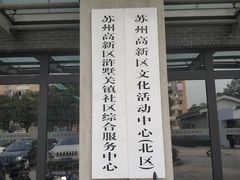 苏州高新区文化活动中心(北区)
苏州高新区浒墅关镇社区综合服务中心